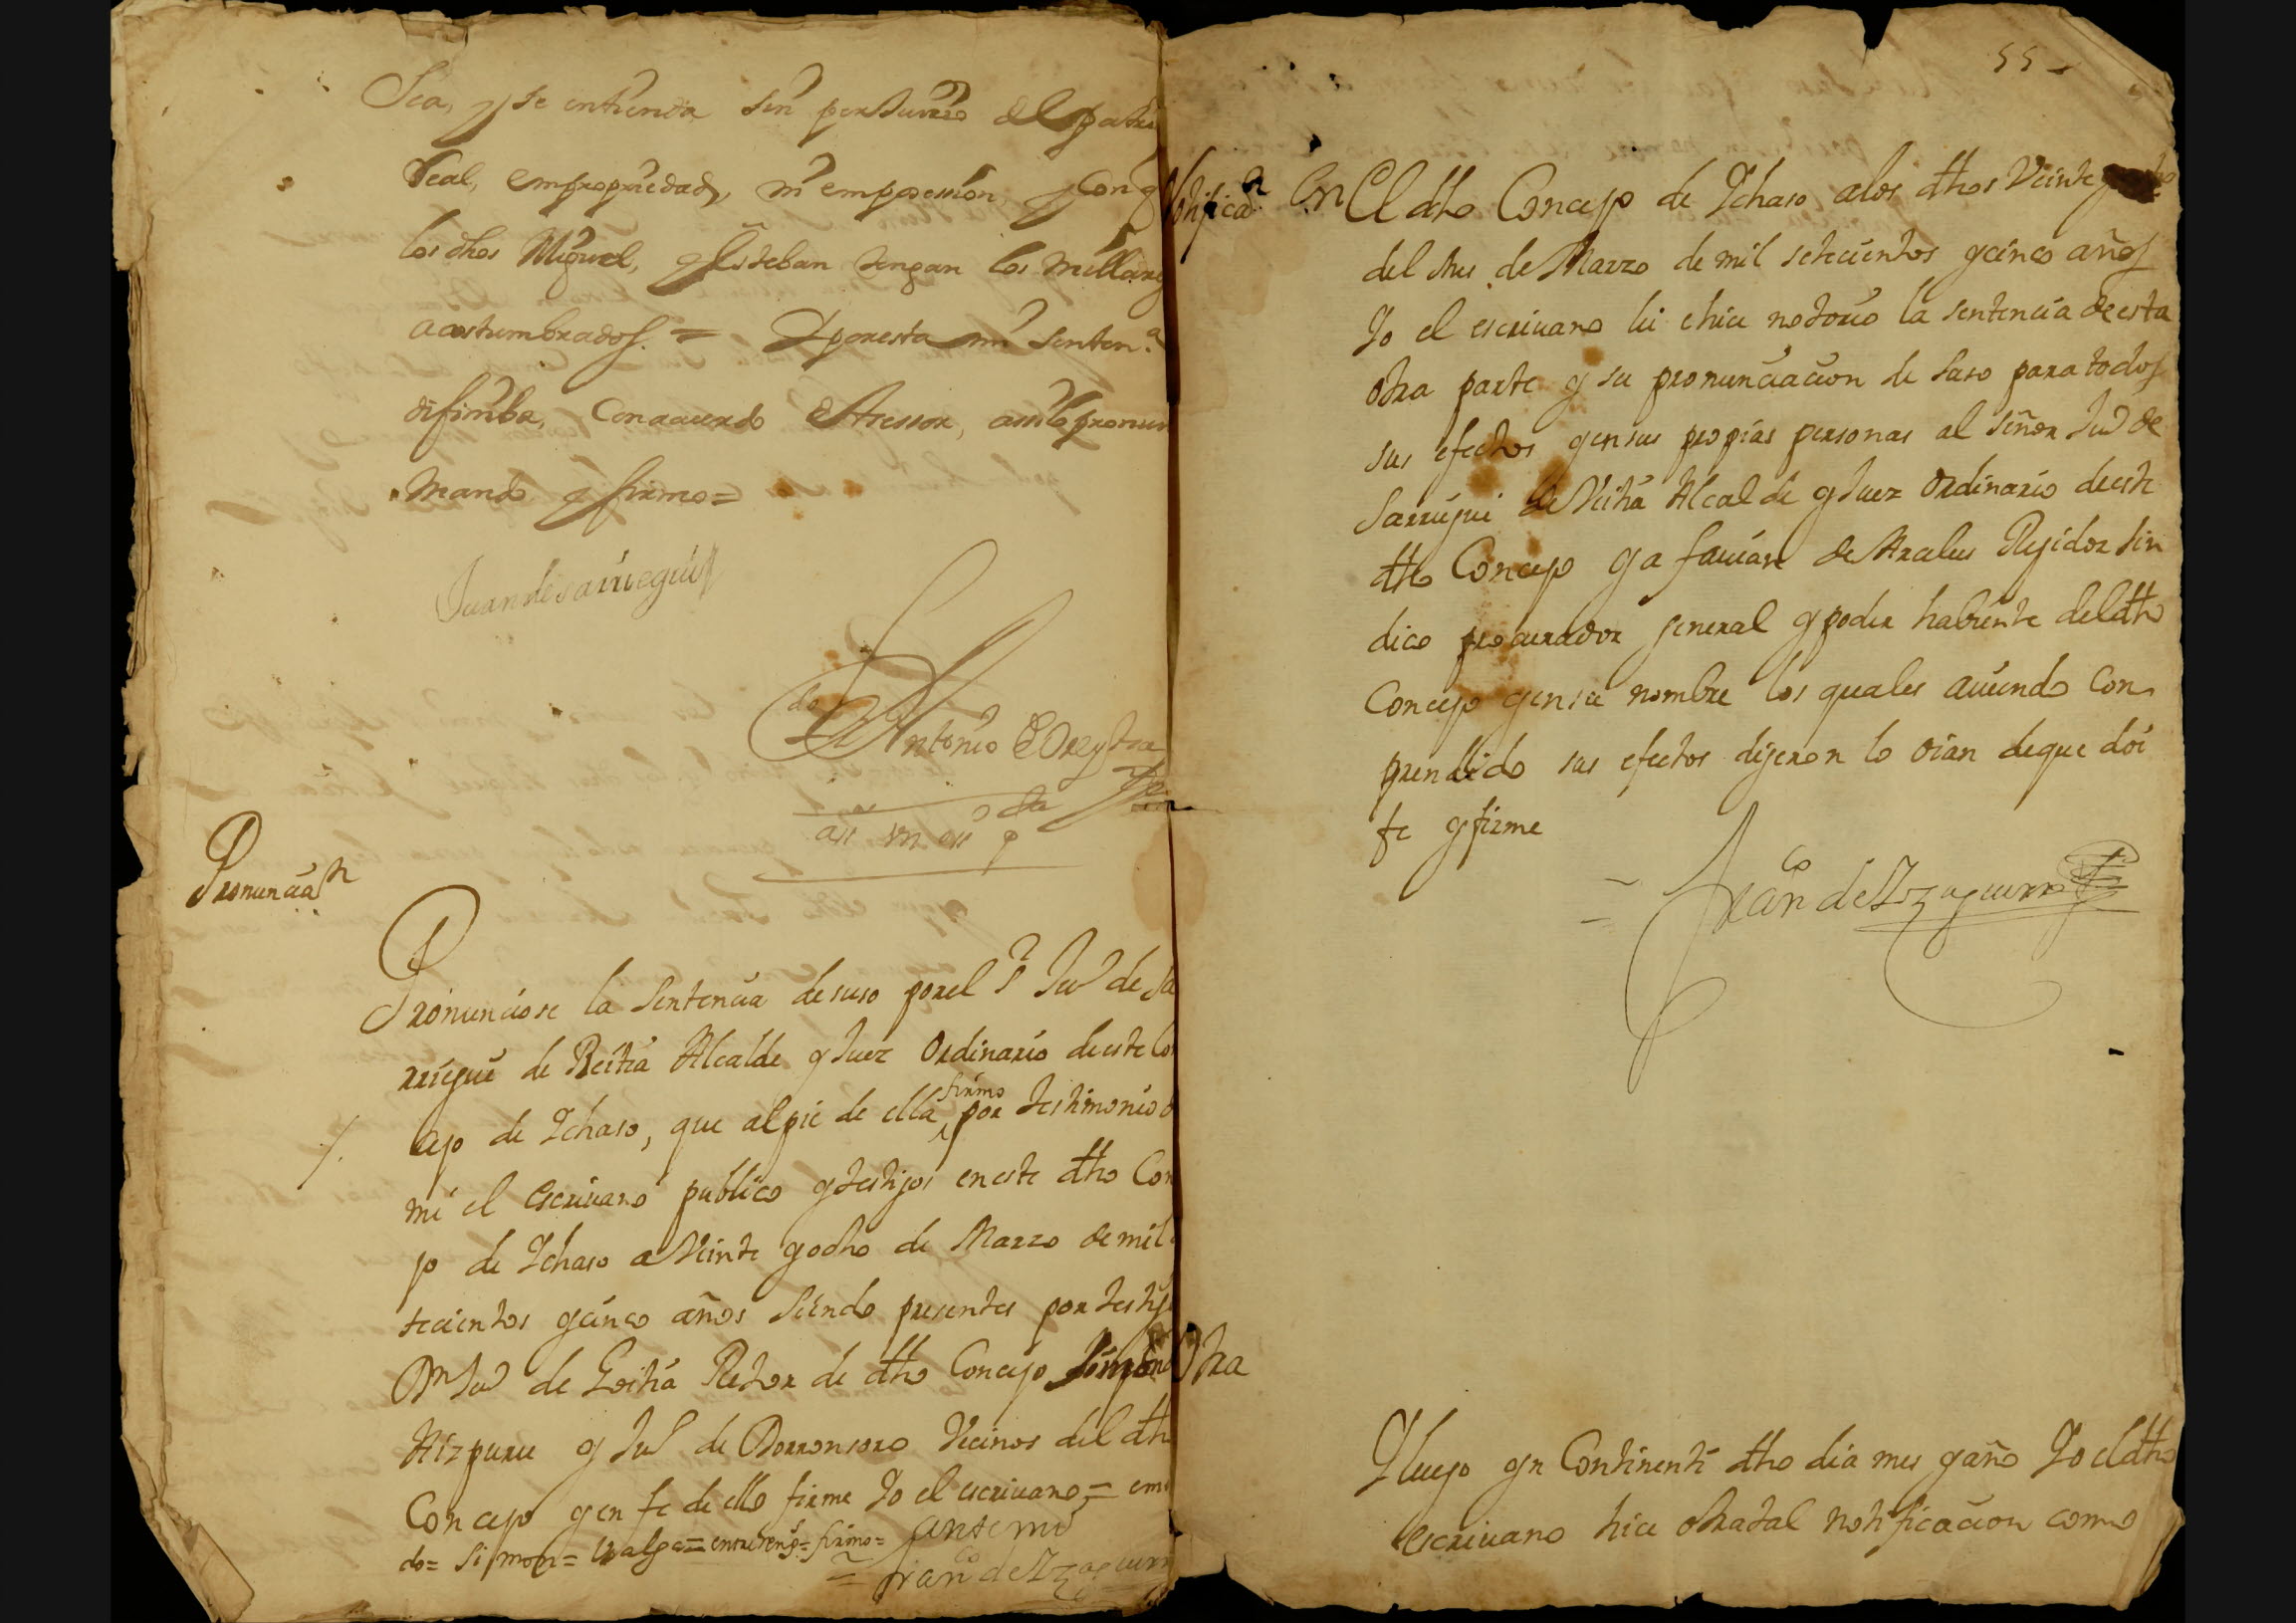 Sea, y se entienda sin perjuicio del patri
Real, en propriedad, ni en posession, y con q
los dhos Miguel, y Esteban tengan los millares
acostumbrados. = Y por esta mi senten.ª
difinitiba, con acuerdo de Assessor, assi lo pronun
mando y firmo =
Juan de sarriegui
L.do Antonio de Oreytia
Pronuncia.n
Pronunciose la sentencia de suso por el S.r Ju.º de sa
rriegui de Beitia Alcalde y Juez Ordinario de este Con
cejo de Ichaso, que al pie de ella firmo por testimonio d
mi el escriuano publico y testigos en este dho Con
jo de Ichaso a Veinte y ocho de Marzo de mil
tecientos y cinco años siendo presentes por testig
D.n Ju.º de Goitia Retor de dho Concejo Simon de
Aizpuru y Ju.º de Dorronsoro Vecinos del dho
Concejo y en fe de ello firme Yo el escriuano = em
do = Simon = valga = entre reng.s = firmo =
ante mi
Fran.co de Yzaguirre
55
Notifica.n
En El dho Concejo de Ichaso a los dhos Veinte y
del mes de Marzo de mil setecientos y cinco años
Yo el escriuano lei e hice notorio la sentencia de esta
otra parte y su pronunciacion de suso para todos
sus efectos y en sus propias personas al señor Ju.º de
Sarriegui de Veitia Alcalde y Juez Ordinario de este
dho Concejo y a de Aralus Rejidor Sin
dico procurador general y poder habiente del dho
Concejo y en su nombre los quales auiendo con
prendido sus efectos dijeron lo oian de que doi
fe y firme
Fran.co de Yzaguirre
Otra
Y luego yn Continenti dho dia mes y año Yo el dho
escriuano hice otra tal notificacion como